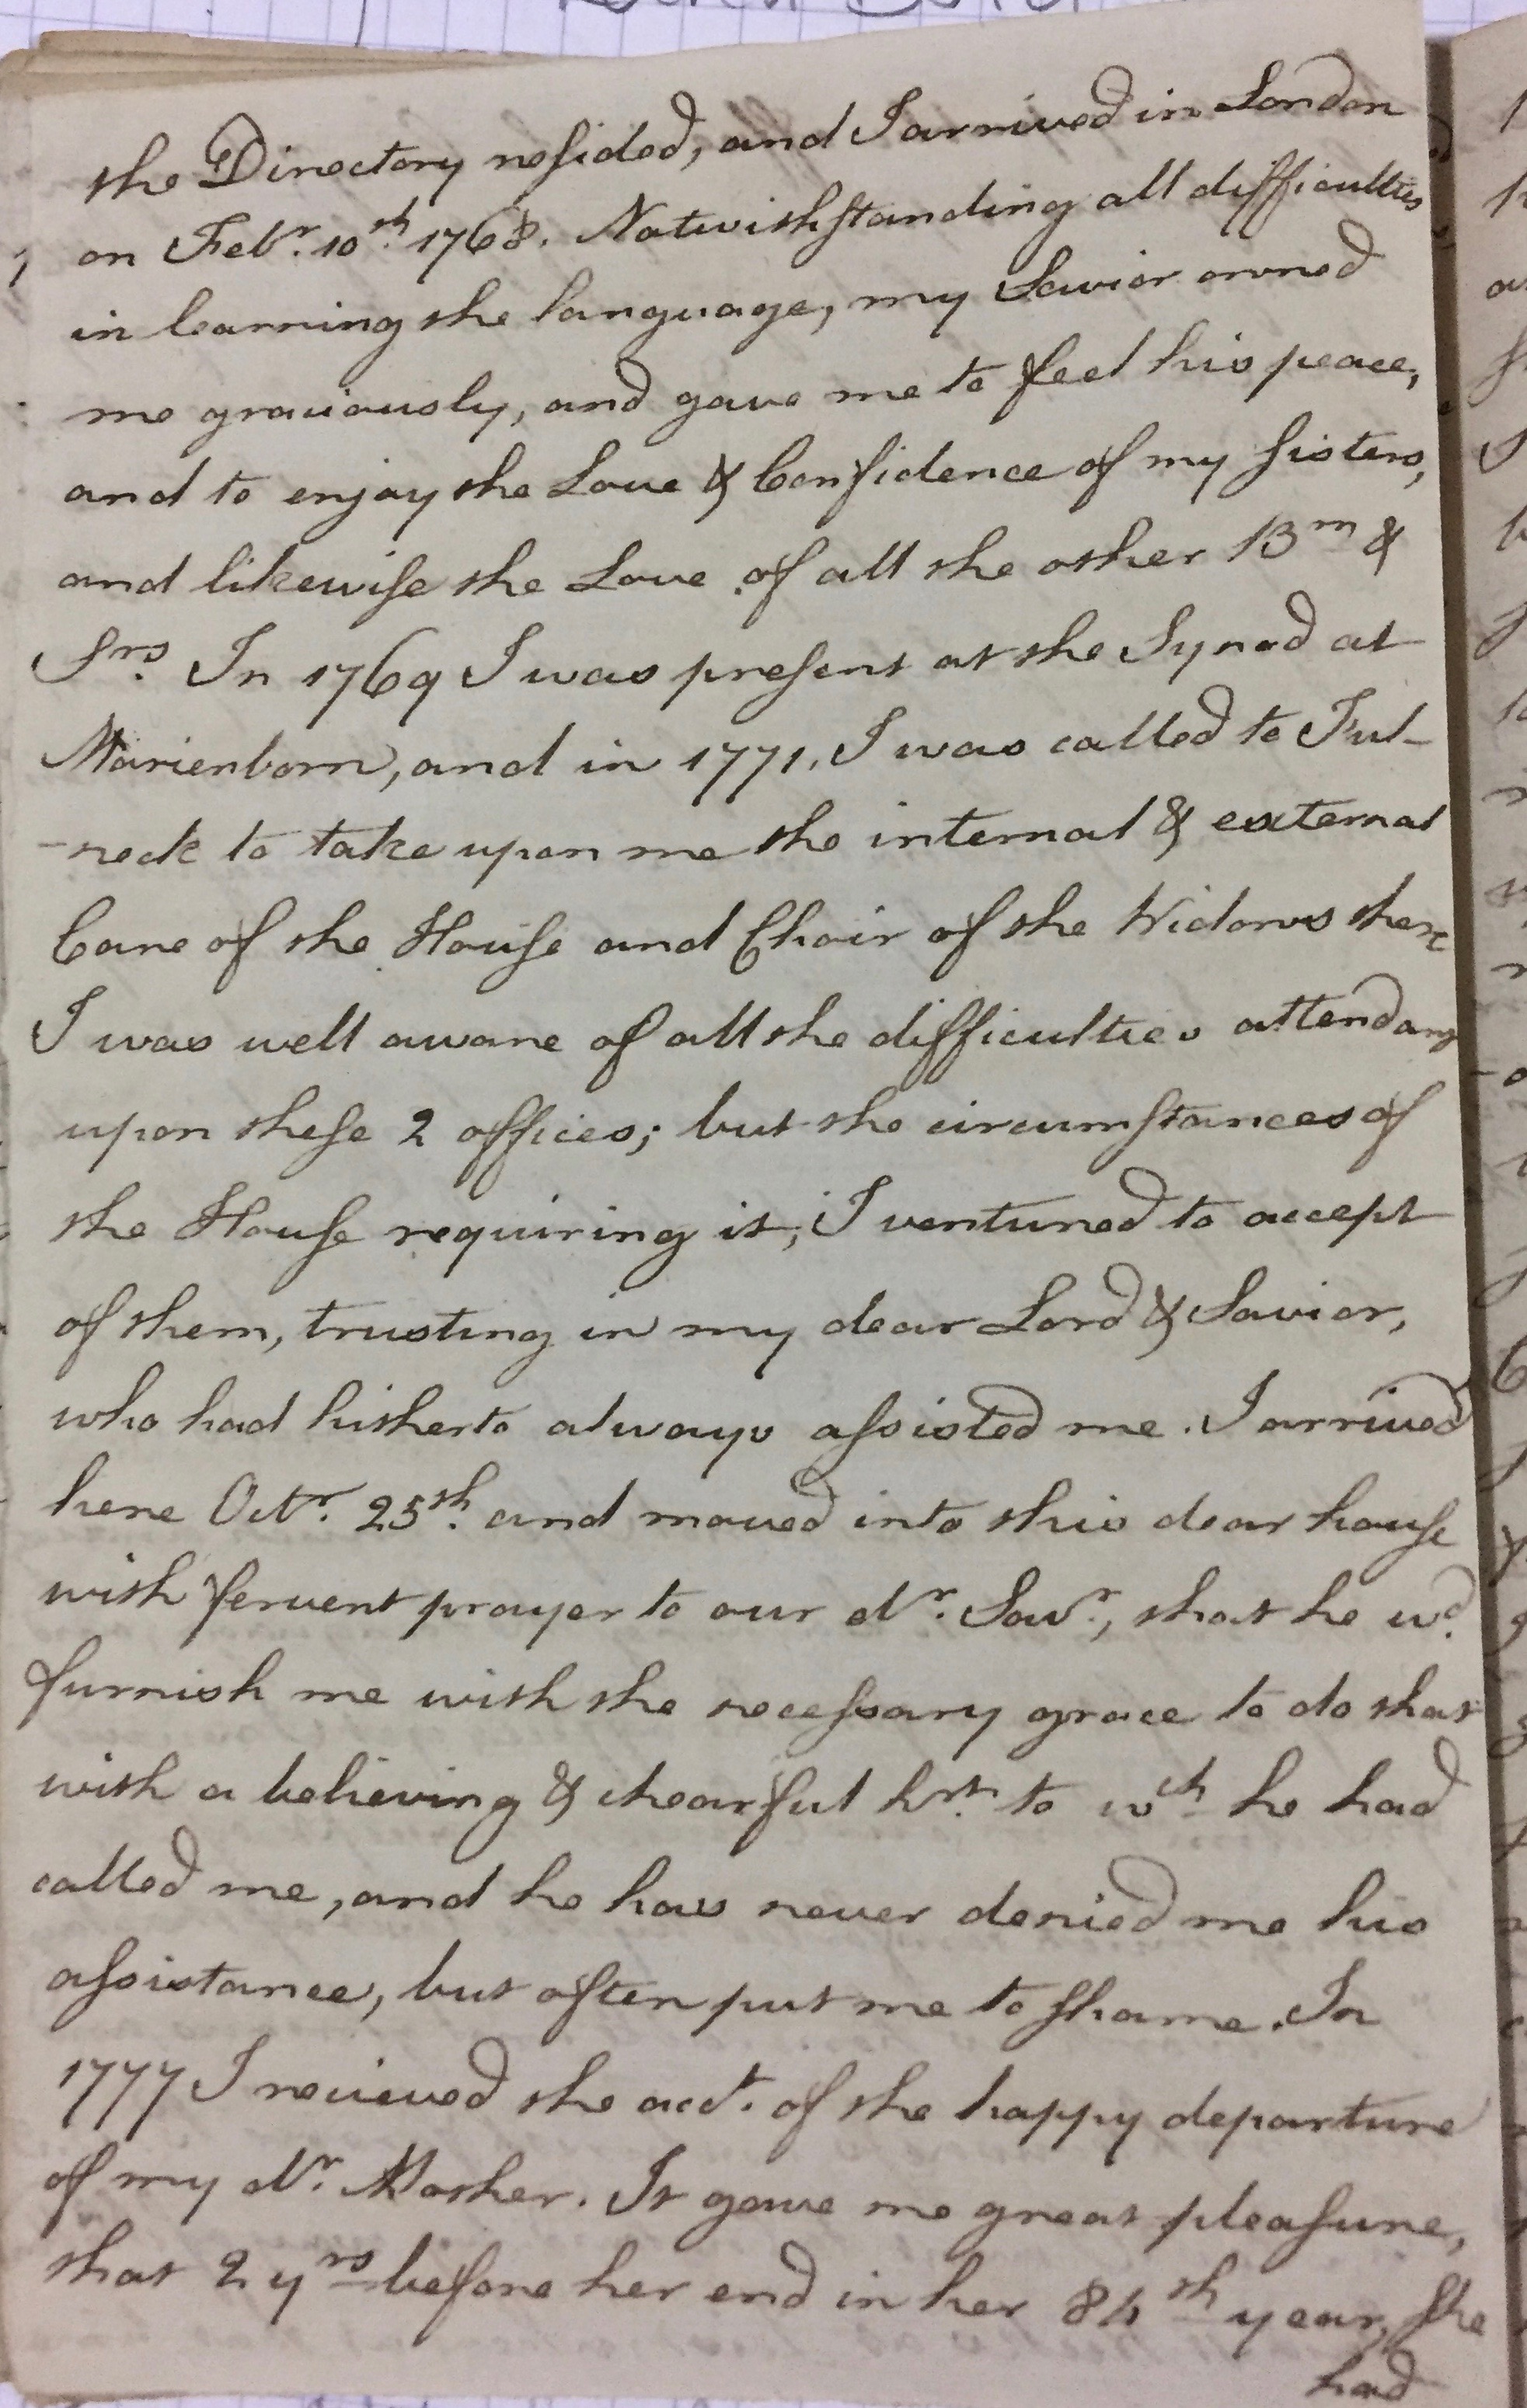 the Directory resided, and I arrived in London
on Febr. 10th 1768. Notwithstanding all difficulties
in learning the language, my Savior owned
me graciously, and gave me to feel his peace,
and to enjoy the Love & Confidence of my Sisters,
and likewise the Love of all the other Brn &
Srs. In 1769 I was present at the Synod at
Marienborn, and in 1771, I was called to Ful-
-neck to take upon me the internal & external
Care of the House and Choir of the Widows there
I was well aware of all the difficulties attendang
upon these 2 offices; but the circumstances of
the House requiring it, I ventured to accept
of them, trusting in my dear Lord & Savior,
who had hitherto always assisted me. I arrived
here Octr. 25th. and moved into this dear house
with fervent prayer to our dr. Savr., that he wd.
furnish me with the necessary grace to do that
with a believing & chearful hrt. to wch he had
called me, and he has never denied me his
assistance, but often put me to shame. In
1777 I recieved the acct. of the happy departure
of my dr. Mother. It gave me great pleasure,
that 2 yrs before her end in her 84th year, she
had